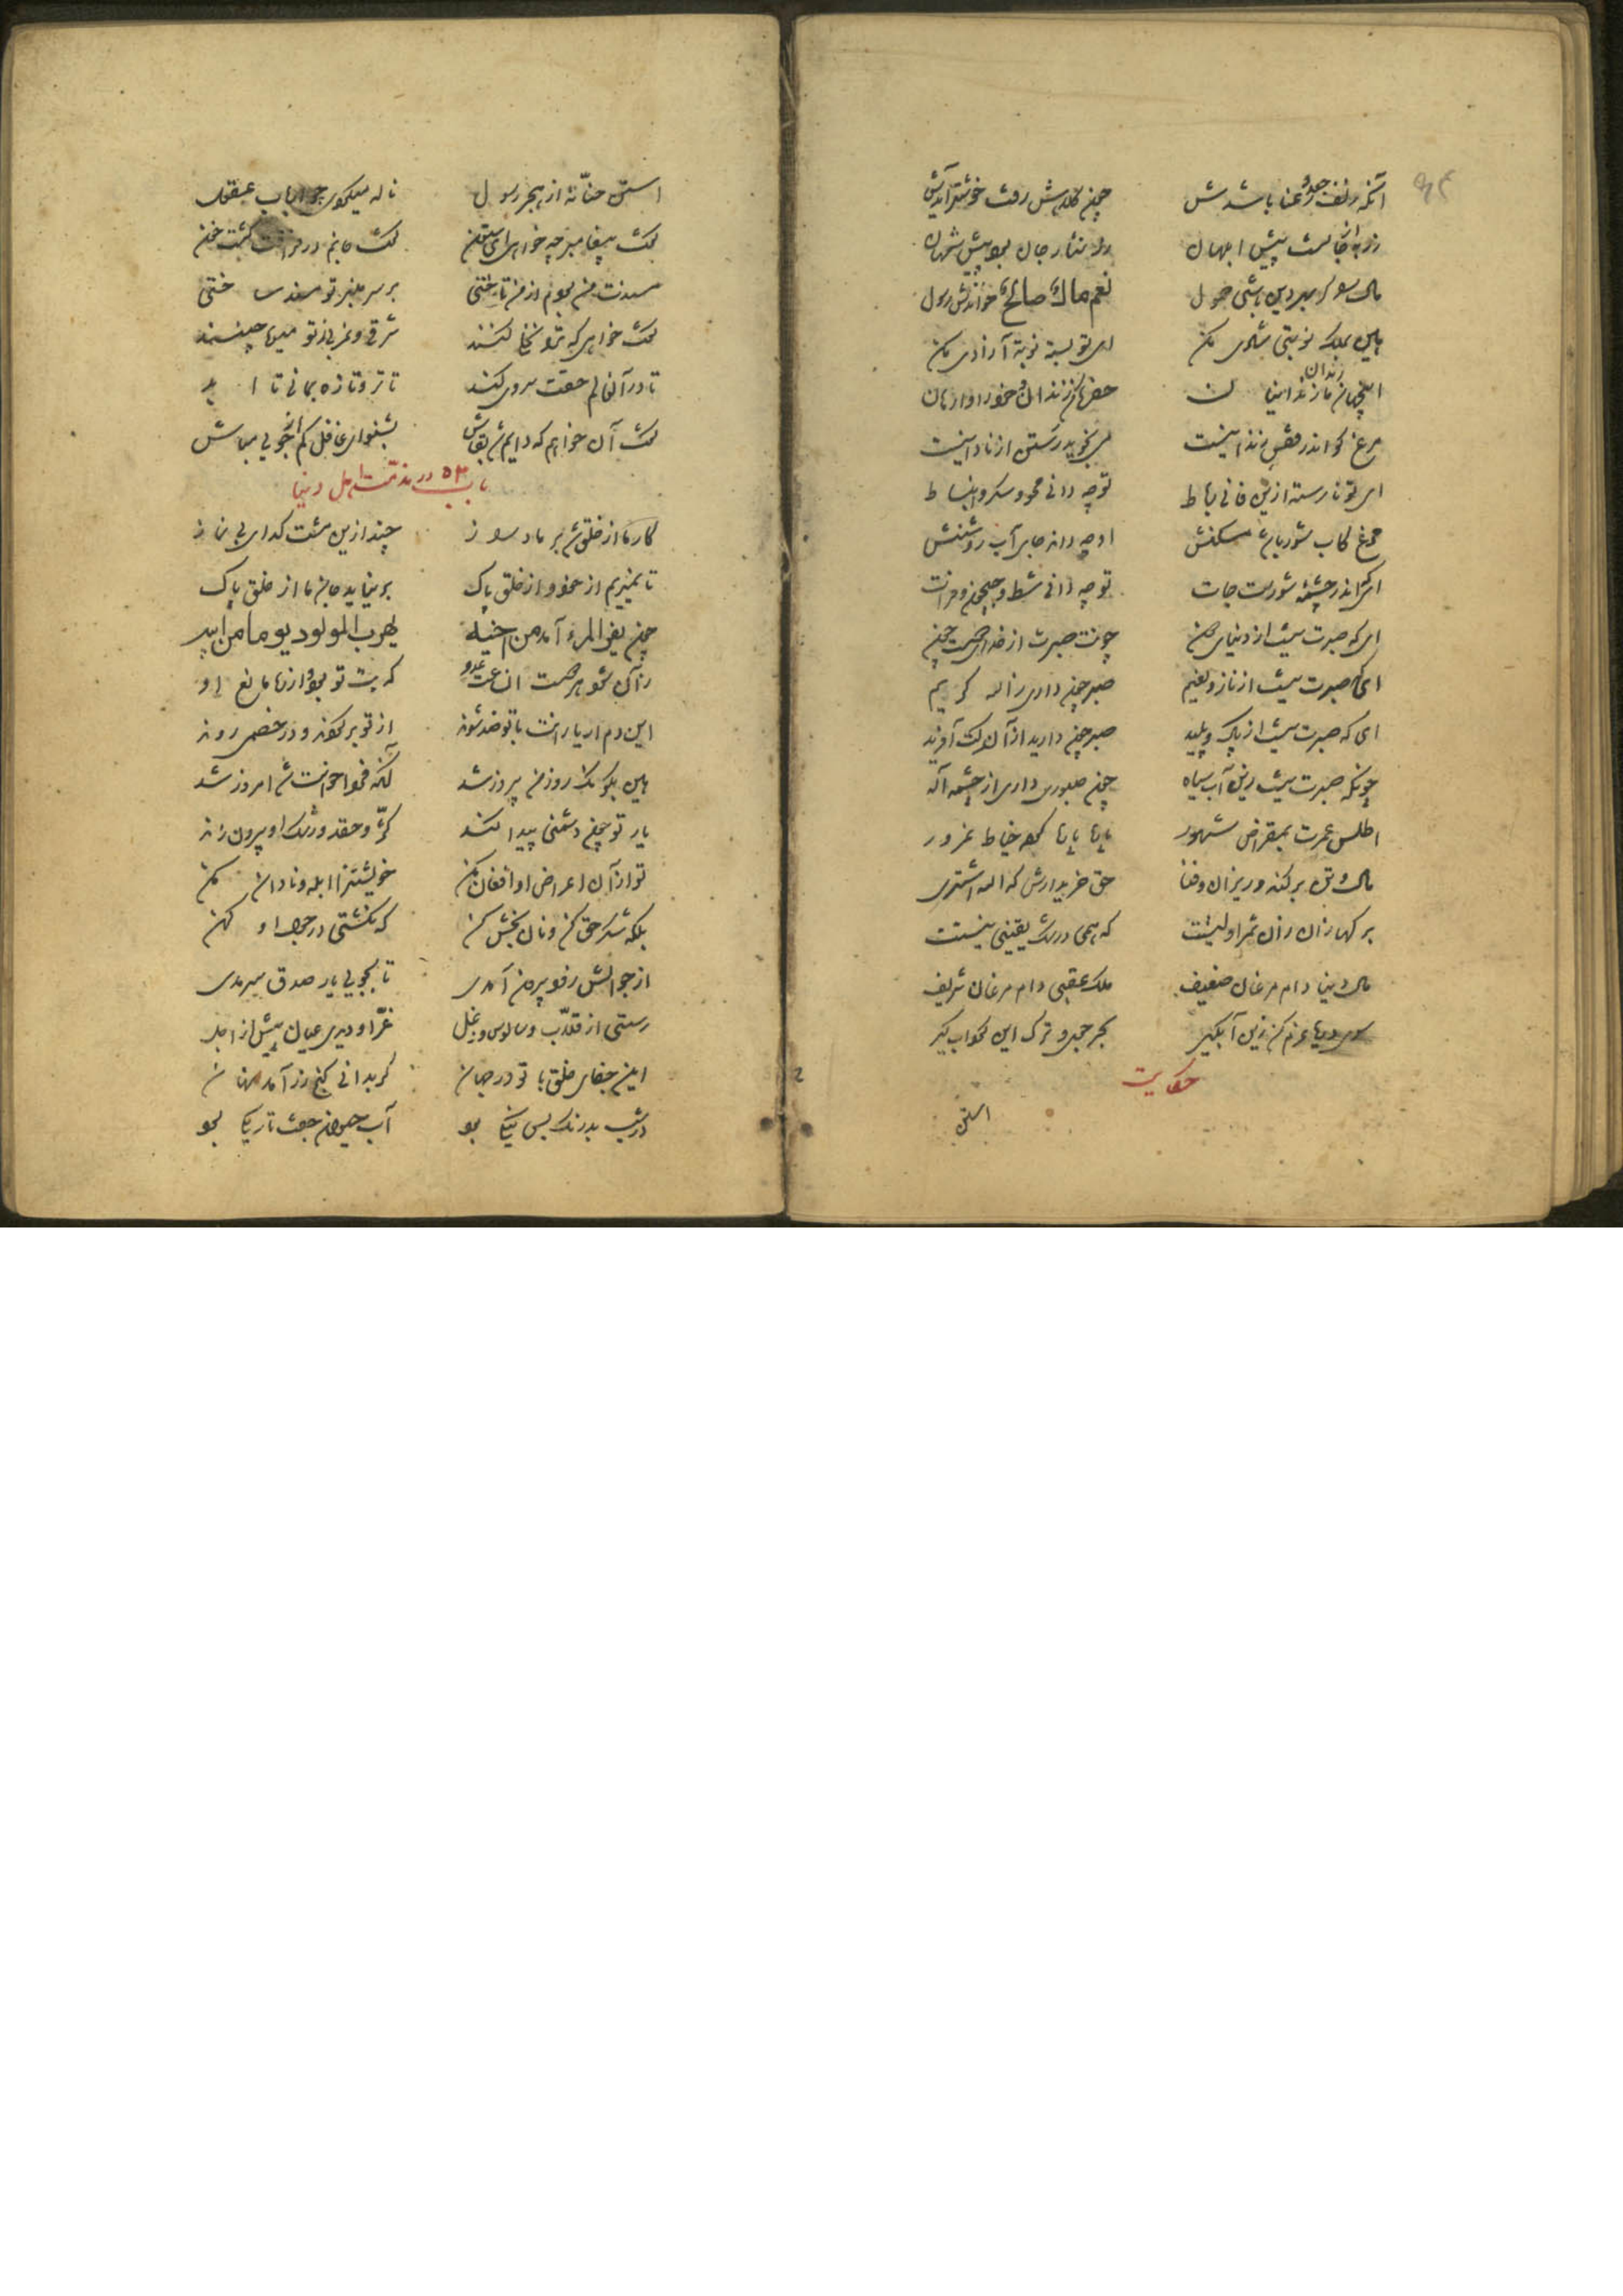 ۹۴
آنکه زلف جعد و رعنا باشدش چون کلاهش رفت خوشتر آیدش
زر به از جانست پیش ابلهان زر نثار جان بود پیش شهان
مال را گر بهر دین باشی حمول نعم مال صالح خواندش رسول
هین بملک نوبتی شادی مکن ای تو بسته نوبت آزادی مکن
این جهان زندان و ما زندانیان حفره کن زندان و خود را وارهان
مرغ کو اندر قفس زندانیست می نجوید رستن از نادانیست
ای تو نارسته ازین فانی رباط تو چه دانی محو و سکر و انبساط
مرغ کاب شور باشد مسکنش او چه داند جای آب روشنش
ای که اندر چشمه شورست جات تو چه دانی شط و جیحون و فرات
ای که صبرت نیست از دنیای دون چونت صبرست از خدا ای دوست چون
ای که صبرت نیست از ناز و نعیم صبر چون داری ز اله کریم
ای که صبرت نیست از پاک و پلید صبر چون داری از آن کت آفرید
چونکه صبرت نیست زین آب سیاه چون صبوری داری از چشمه اله
اطلس عمرت بمقراض شهور پاره پاره کرد خیاط غرور
مال و تن برف‌اند و ریزان فنا حق خریدارش که الله اشتری
برفها زان از ثمن اولیستت که همی در شک یقینی نیستت
مال دنیا دام مرغان ضعیف ملک عقبی دام مرغان شریف
سوی دریا عزم کن زین آبگیر بحر جو و ترک این گرداب گیر
حکایت
استن
استن حنانه از هجر رسول ناله میکردی چو ارباب عقول
گفت پیغامبر چه خواهی ای ستون گفت جانم در فراقت گشت خون
مسندت من بودم از من تاختی بر سر منبر تو مسند ساختی
گفت خواهی که ترا نخلی کنند شرقی و غربی ز تو میوه چینند
یا در آن عالم حقت سروی کند تا تر و تازه بمانی تا ابد
گفت آن خواهم که دایم شد بقاش بشنو ای غافل کم از چوبی مباش
باب ۵۳ در مذمت اهل دنیا
کار ما از خلق شد بر ما دراز چند ازین مشت گدای بی نماز
تا نمیریم از خود و از خلق پاک برنیاید جان ما از خلق پاک
چون یفر المرء آمد من اخیه یهرب المولود یوما من ابیه
زان شود هر دوست آن ساعت عدو که بت تو بود و از ره مانع او
این دم ار یارانت با تو ضد شوند از تو برگردند و در خصمی روند
هین بگو نک روز من پیروز شد آنکه فردا خواست شد امروز شد
یار تو چون دشمنی پیدا کند کر و حقد و رشک او بیرون زند
تو از آن اعراض او افغان مکن خویشتن را ابله و نادان مکن
بلکه شکر حق کن و نان بخش کن که نگشتی در جوال او کهن
از جوالش زود بیرون آمدی تا بجویی یار صدق سرمدی
رستی از قلاب و سالوس و دغل غر او دیدی عیان پیش از اجل
این جفای خلق با تو در جهان گر بدانی گنج زر آمد نهان
در شب بدرنگ بس نیکی بود آب حیوان جفت تاریکی بود